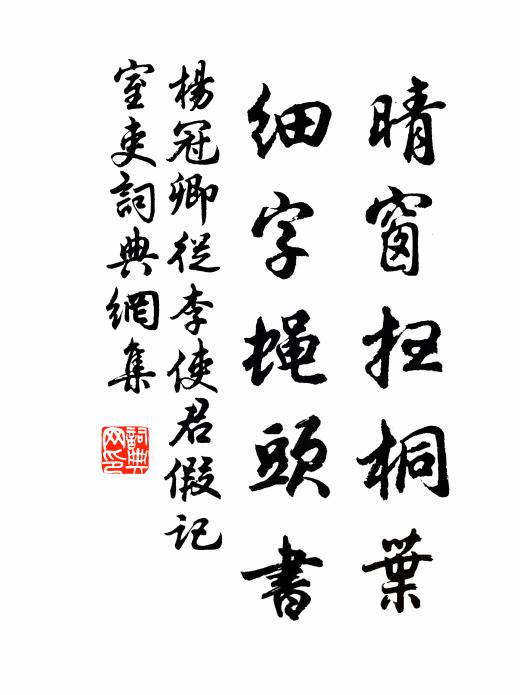 晴窗扫桐葉
細字蝇頭書
楊冠卿從李使君假記
室吏詞典網集
詞典网印